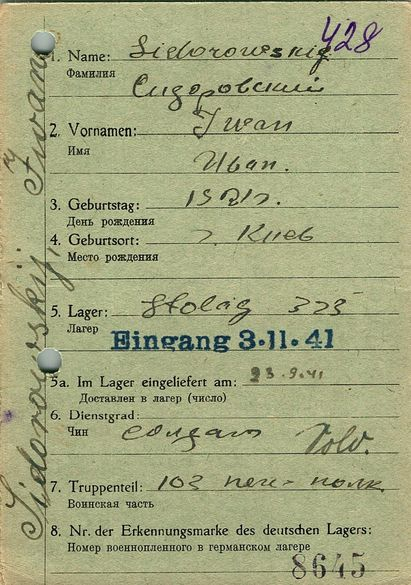 428
1. Name: Sidorowskij
Фамилия
Сидоровский
2. Vornamen: Iwan
Имя
Иван.
3. Geburtstag: 1921г.
День рождения
4. Geburtsort: г. Киев
Место рождения
5. Lager: Stalag 325
Лагерь
Eingang 3.11.41
5a. Im Lager eingeliefert am: 23.9.41
Доставлен в лагер (число)
6. Dienstgrad:
Чин солдат
7. Truppenteil: 103 пех-полк.
Воинская часть
8. Nr. der Erkennungsmarke des deutschen Lagers:
Номер военнопленного в германском лагере
8645
Sidorowskij, Iwan